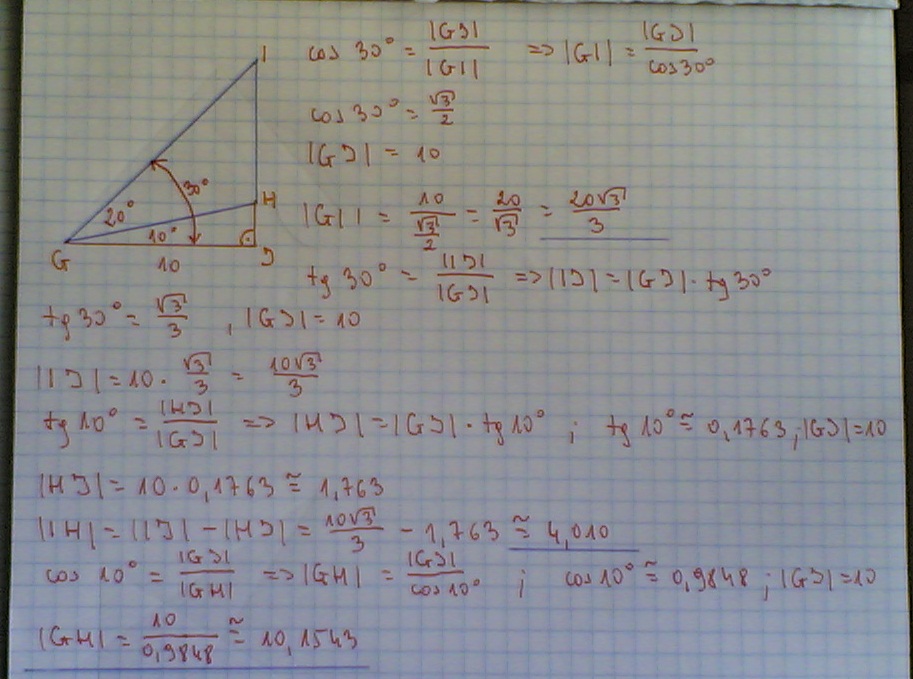 cos 30° = |GJ| / |GI| => |GI| = |GJ| / cos 30°
cos 30° = √3 / 2
|GJ| = 10
|GI| = 10 / (√3 / 2) = 20 / √3 = 20√3 / 3
I
30°
20°
H
10°
G
10
J
tg 30° = |IJ| / |GJ| => |IJ| = |GJ| · tg 30°
tg 30° = √3 / 3 , |GJ| = 10
|IJ| = 10 · √3 / 3 = 10√3 / 3
tg 10° = |HJ| / |GJ| => |HJ| = |GJ| · tg 10° ; tg 10° ≅ 0,1763 ; |GJ| = 10
|HJ| = 10 · 0,1763 ≅ 1,763
|IH| = |IJ| - |HJ| = 10√3 / 3 - 1,763 ≅ 4,010
cos 10° = |GJ| / |GH| => |GH| = |GJ| / cos 10° ; cos 10° ≅ 0,9848 ; |GJ| = 10
|GH| = 10 / 0,9848 ≅ 10,1543